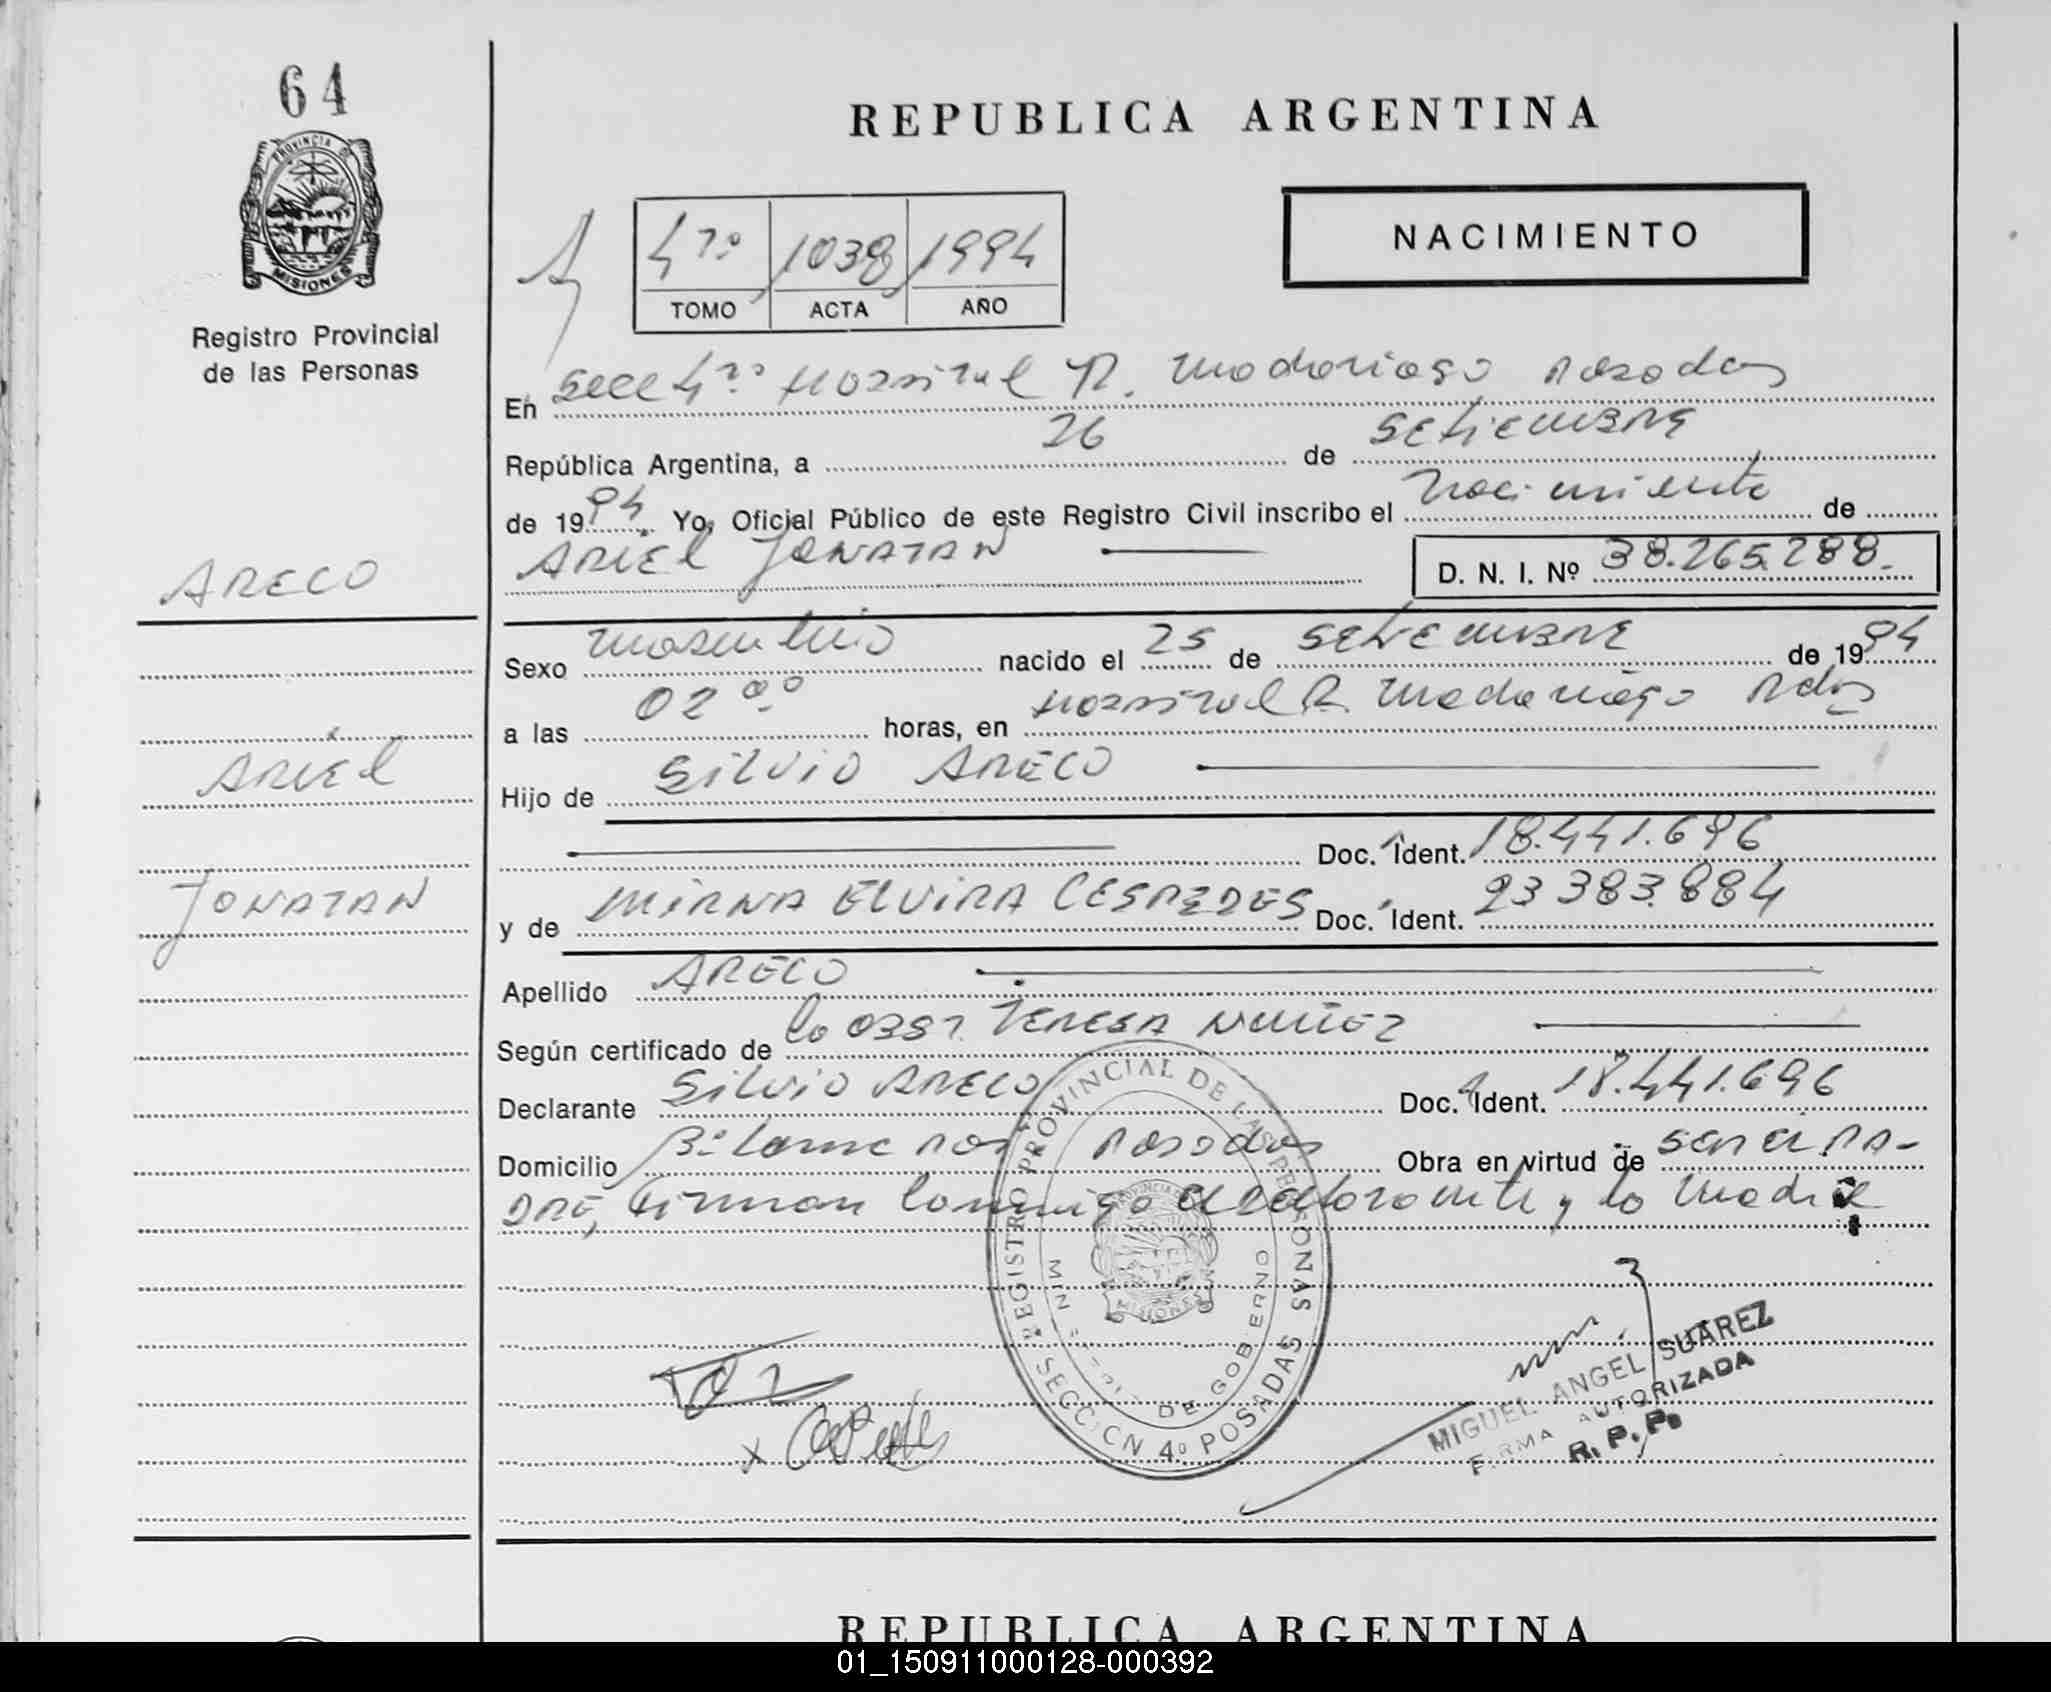 64
PROVINCIA D
MISIONES
Registro Provincial
de las Personas
REPUBLICA ARGENTINA
NACIMIENTO
4ro 1038 1994
TOMO ACTA AÑO
En Secc 4ta Hospital R. Madariaga Posadas
República Argentina, a 26 de Setiembre
de 1994 Yo, Oficial Público de este Registro Civil inscribo el Nacimiento de
ARIEL JONATAN D. N. I. Nº 38.265.288.
ARECO
Sexo masculino nacido el 25 de Setiembre de 1994
a las 02 00 horas, en Hospital R. Madariaga Pdas
ARIEL
Hijo de Silvio ARECO
Doc. Ident. 18.441.696
JONATAN
y de MIRNA ELVIRA CESPEDES Doc. Ident. 23 383.884
Apellido ARECO
Según certificado de la obst. TERESA NUÑEZ
Declarante Silvio ARECO Doc. Ident. 18.441.696
Domicilio Posadas Obra en virtud de ser el PA-
DRE, Firman conmigo el declarante y la madre
REGISTRO PROVINCIAL DE LAS PERSONAS
MINISTERIO DE GOBIERNO
MISIONES
SECCION 4º POSADAS
MIGUEL ANGEL SUAREZ
FIRMA AUTORIZADA
R. P. P.
REPUBLICA ARGENTINA
01_150911000128-000392